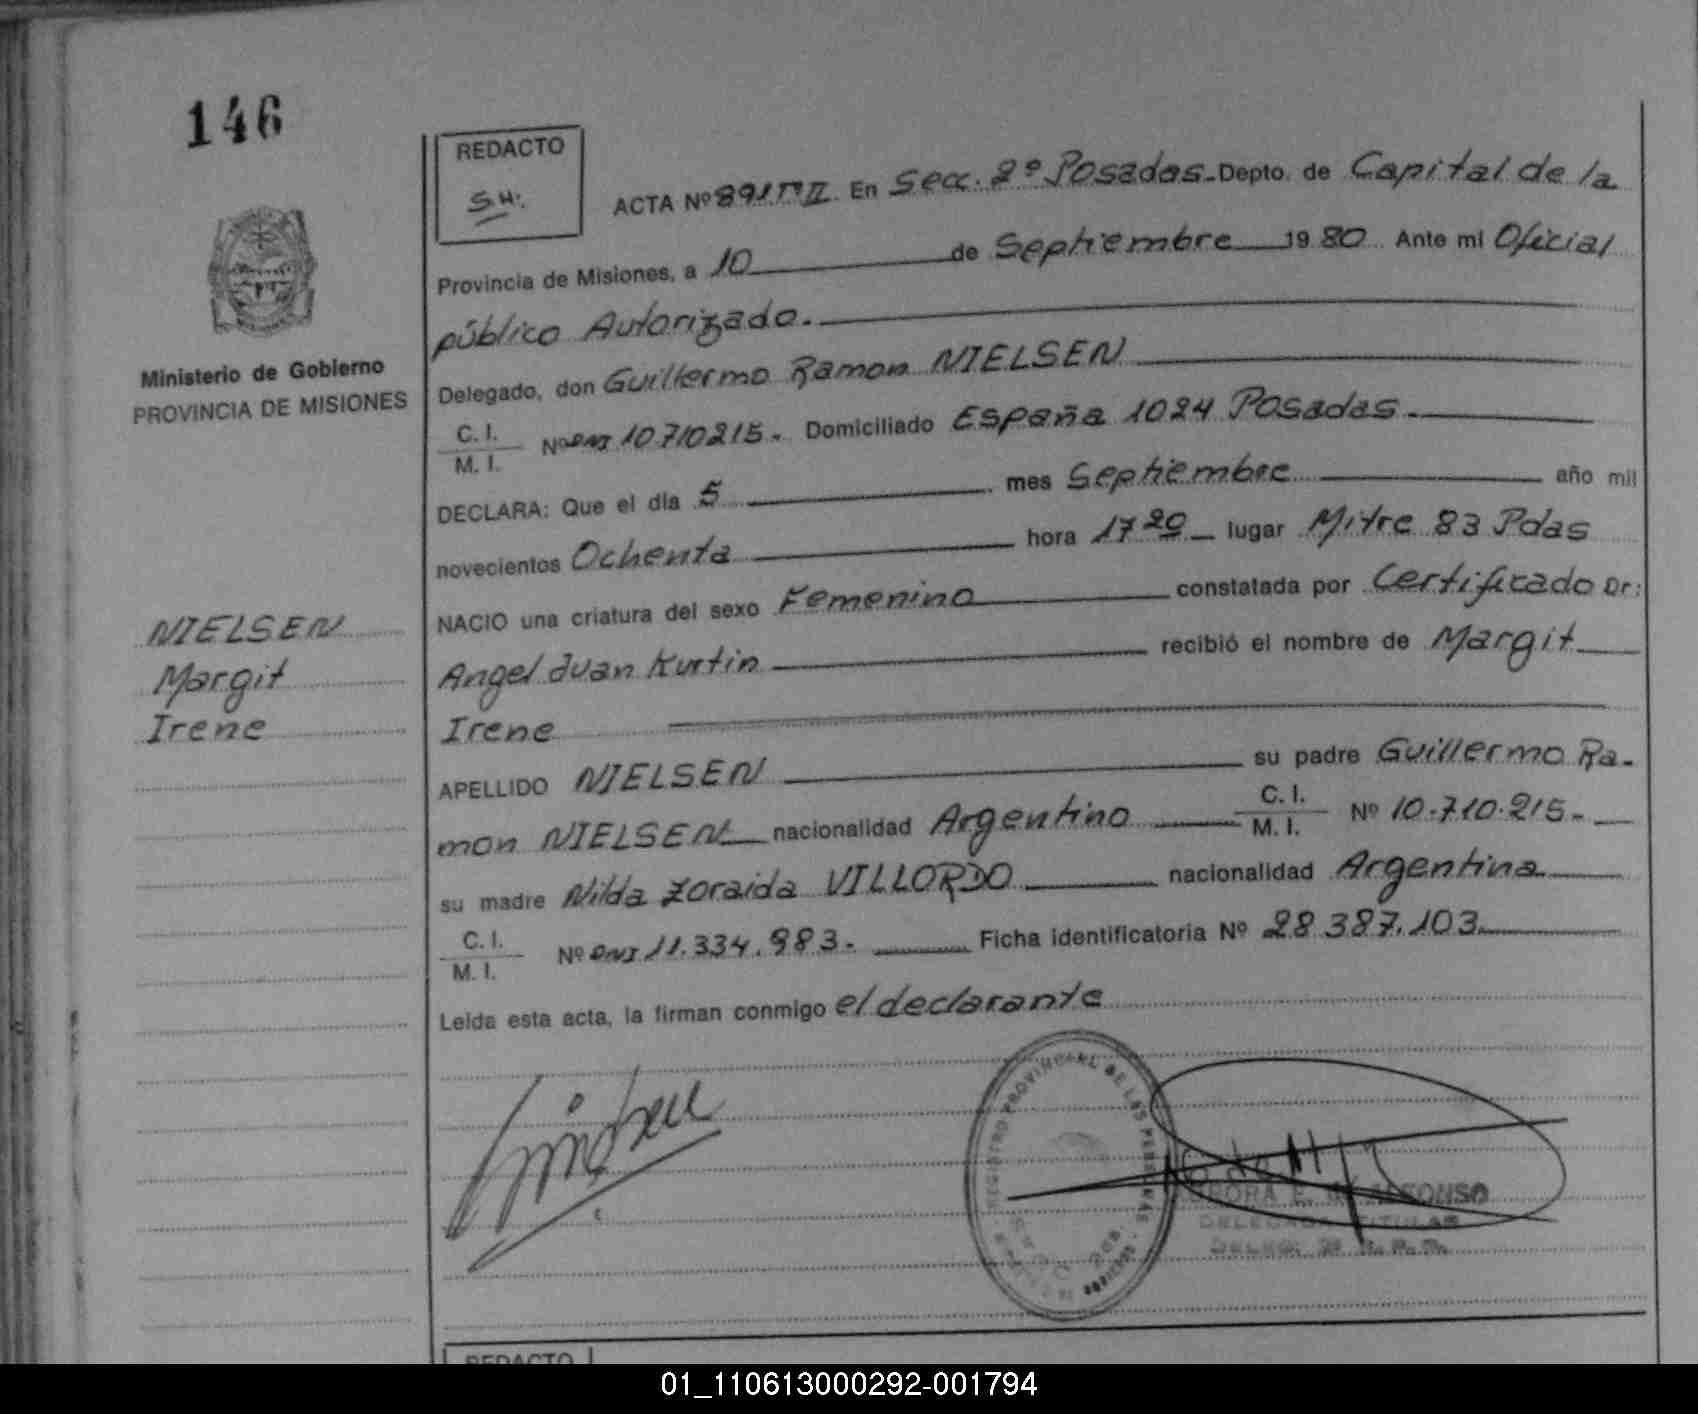 146
REDACTO
S.H.
ACTA Nº 891 Tº II. En Secc. 2º Posadas. Depto. de Capital de la
Provincia de Misiones, a 10 de Septiembre 1980 Ante mi Oficial
público Autorizado.
Ministerio de Gobierno
PROVINCIA DE MISIONES
Delegado, don Guillermo Ramon NIELSEN
C. I.
M. I. Nº DNI 10710215. Domiciliado España 1024 Posadas.
DECLARA: Que el día 5 mes Septiembre año mil
novecientos Ochenta hora 17 20 lugar Mitre 83 Pdas
NACIO una criatura del sexo Femenino constatada por Certificado Dr:
NIELSEN
Margit
Irene
Angel Juan Kurtin recibió el nombre de Margit
Irene
APELLIDO NIELSEN su padre Guillermo Ra-
mon NIELSEN nacionalidad Argentino C. I. M. I. Nº 10.710.215.
su madre Nilda Zoraida VILLORDO nacionalidad Argentina
C. I.
M. I. Nº DNI 11.334.983. Ficha identificatoria Nº 28.387.103
Leída esta acta, la firman conmigo el declarante
REGISTRO PROVINCIAL DE LAS PERSONAS
DELEGADA TITULAR
REDACTO
01_110613000292-001794